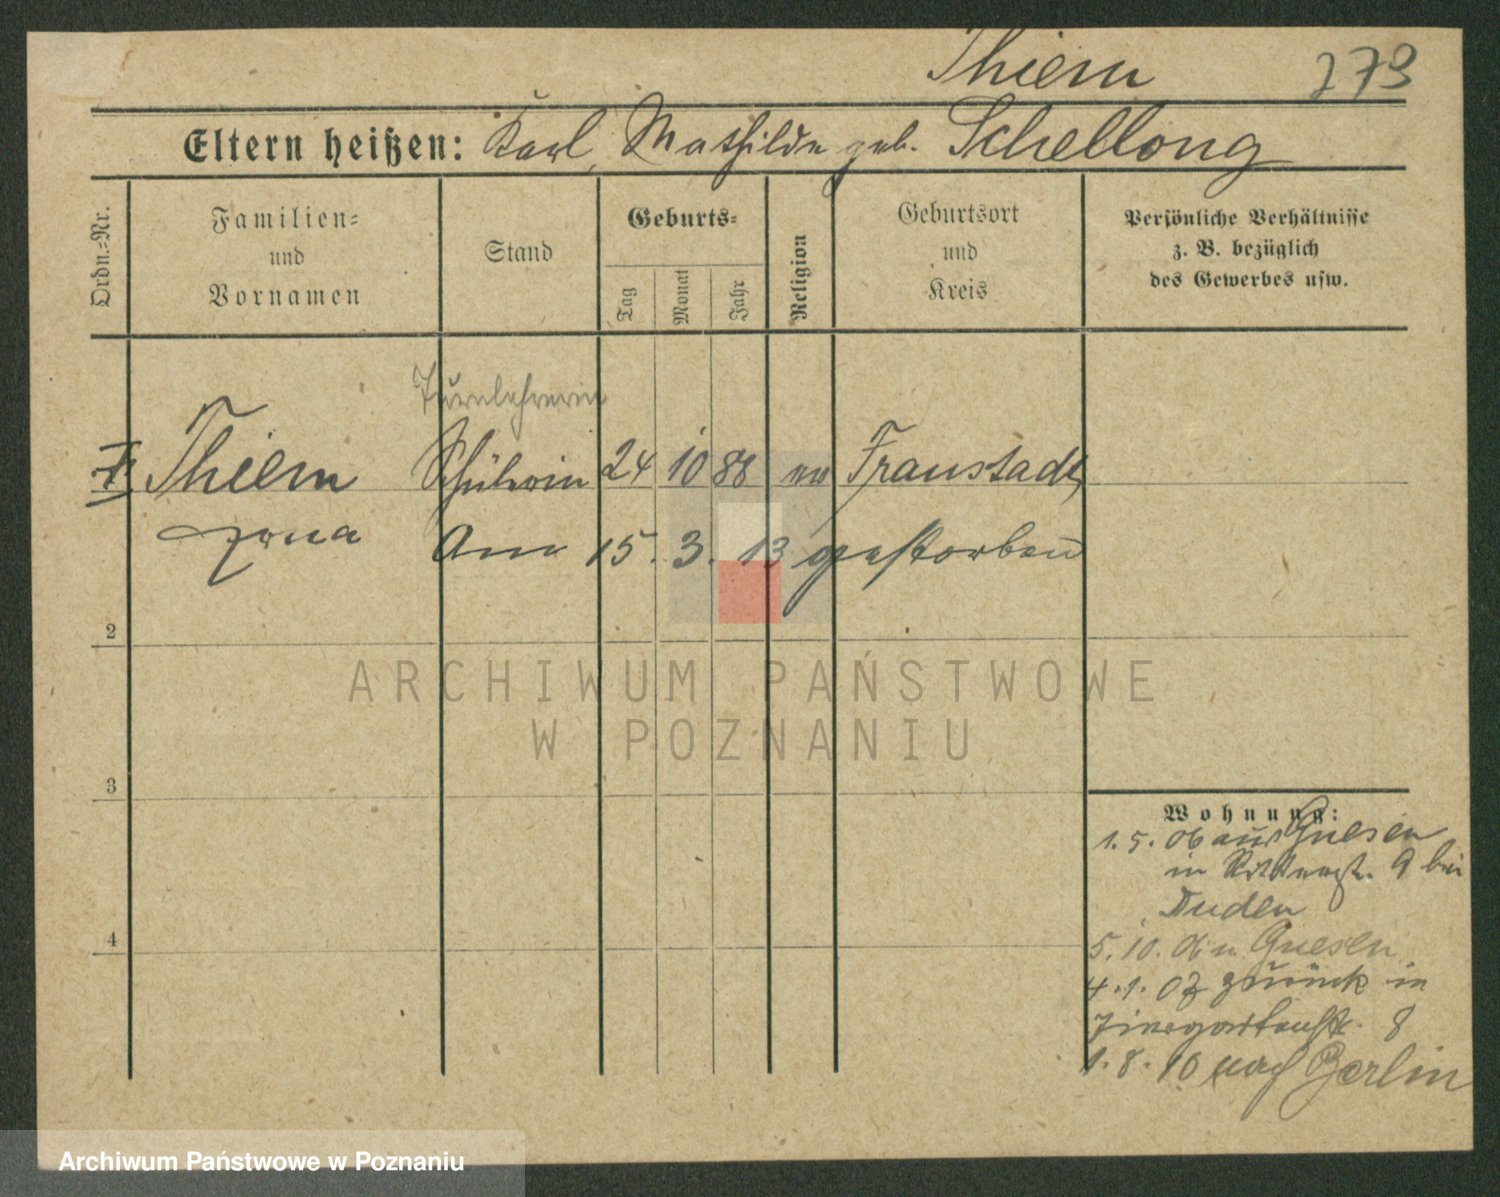 Thiem 273
Eltern heißen: Karl, Mathilde geb. Schellong
Ordn.-Nr.
Familien-
und
Vornamen
Stand
Geburts-
Tag
Monat
Jahr
Religion
Geburtsort
und
Kreis
Persönliche Verhältnisse
z. B. bezüglich
des Gewerbes usw.
Turnlehrerin
1 Thiem Schülerin 24 10 88 ev Fraustadt
Erna Am 15. 3. 13 gestorben
2
3
4
Wohnung:
1. 5. 06 aus Gnesen
in Ritterstr. 9 bei
Duden
5. 10. 06 n. Gnesen
4. 1. 07 zurück in
Tiergartenstr. 8
1. 8. 10 nach Berlin
ARCHIWUM PAŃSTWOWE
W POZNANIU
Archiwum Państwowe w Poznaniu